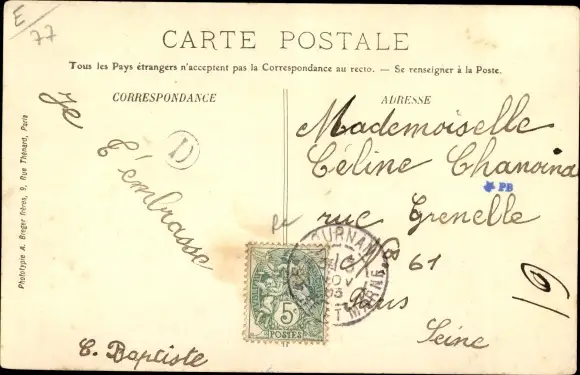 E/77
CARTE POSTALE
Tous les Pays étrangers n'acceptent pas la Correspondance au recto. — Se renseigner à la Poste.
CORRESPONDANCE
ADRESSE
Je
t'embrasse
D
E. Baptiste
Mademoiselle
Céline Chanoina
PB
rue Grenelle
61
Paris
Seine
19
TOURNAN
16
NOV
05
ET MARNE
5c
POSTES
Phototypie A. Breger frères, 9, Rue Thénard, Paris